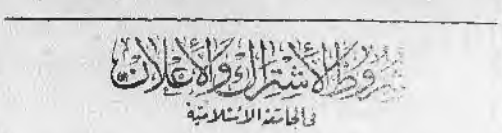 شروط الأشتراك والأعلان
في الجامعة الأسلامية